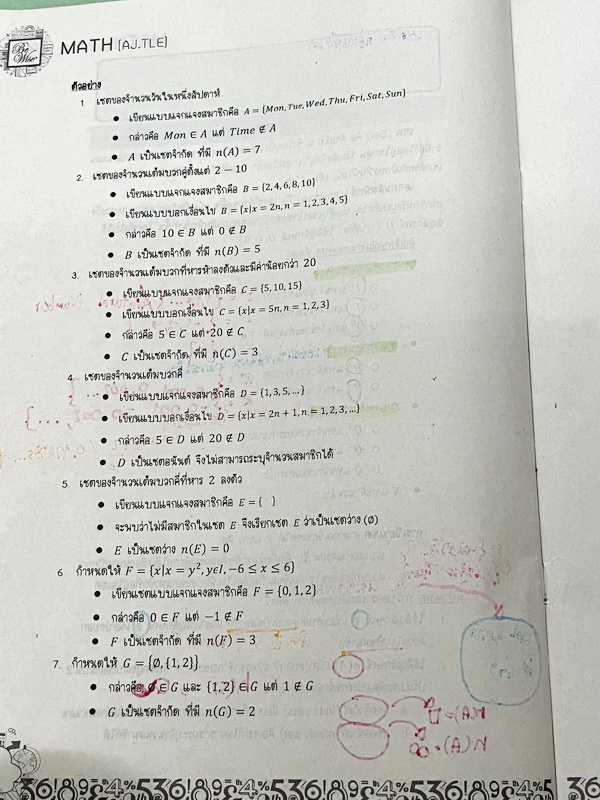 Be Wise
MATH (AJ.TLE)
ตัวอย่าง
1. เซตของจำนวนวันในหนึ่งสัปดาห์
● เขียนแบบแจกแจงสมาชิกคือ A = {Mon, Tue, Wed, Thu, Fri, Sat, Sun}
● กล่าวคือ Mon ∈ A แต่ Time ∉ A
● A เป็นเซตจำกัด ที่มี n(A) = 7
2. เซตของจำนวนเต็มบวกคู่ตั้งแต่ 2 – 10
● เขียนแบบแจกแจงสมาชิกคือ B = {2, 4, 6, 8, 10}
● เขียนแบบบอกเงื่อนไข B = {x|x = 2n, n = 1, 2, 3, 4, 5}
● กล่าวคือ 10 ∈ B แต่ 0 ∉ B
● B เป็นเซตจำกัด ที่มี n(B) = 5
3. เซตของจำนวนเต็มบวกที่หารห้าลงตัวและมีค่าน้อยกว่า 20
● เขียนแบบแจกแจงสมาชิกคือ C = {5, 10, 15}
● เขียนแบบบอกเงื่อนไข C = {x|x = 5n, n = 1, 2, 3}
● กล่าวคือ 5 ∈ C แต่ 20 ∉ C
● C เป็นเซตจำกัด ที่มี n(C) = 3
4. เซตของจำนวนเต็มบวกคี่
● เขียนแบบแจกแจงสมาชิกคือ D = {1, 3, 5, ...}
● เขียนแบบบอกเงื่อนไข D = {x|x = 2n + 1, n = 1, 2, 3, ...}
● กล่าวคือ 5 ∈ D แต่ 20 ∉ D
● D เป็นเซตอนันต์ จึงไม่สามารถระบุจำนวนสมาชิกได้
5. เซตของจำนวนเต็มบวกคี่ที่หาร 2 ลงตัว
● เขียนแบบแจกแจงสมาชิกคือ E = { }
● จะพบว่าไม่มีสมาชิกในเซต E จึงเรียกเซต E ว่าเป็นเซตว่าง (∅)
● E เป็นเซตว่าง n(E) = 0
6. กำหนดให้ F = {x|x = y², y∈I, −6 ≤ x ≤ 6}
● เขียนเซตแบบแจกแจงสมาชิกคือ F = {0, 1, 2}
● กล่าวคือ 0 ∈ F แต่ −1 ∉ F
● F เป็นเซตจำกัด ที่มี n(F) = 3
7. กำหนดให้ G = {∅, {1, 2}}
● กล่าวคือ ∅ ∈ G และ {1, 2} ∈ G แต่ 1 ∉ G
● G เป็นเซตจำกัด ที่มี n(G) = 2